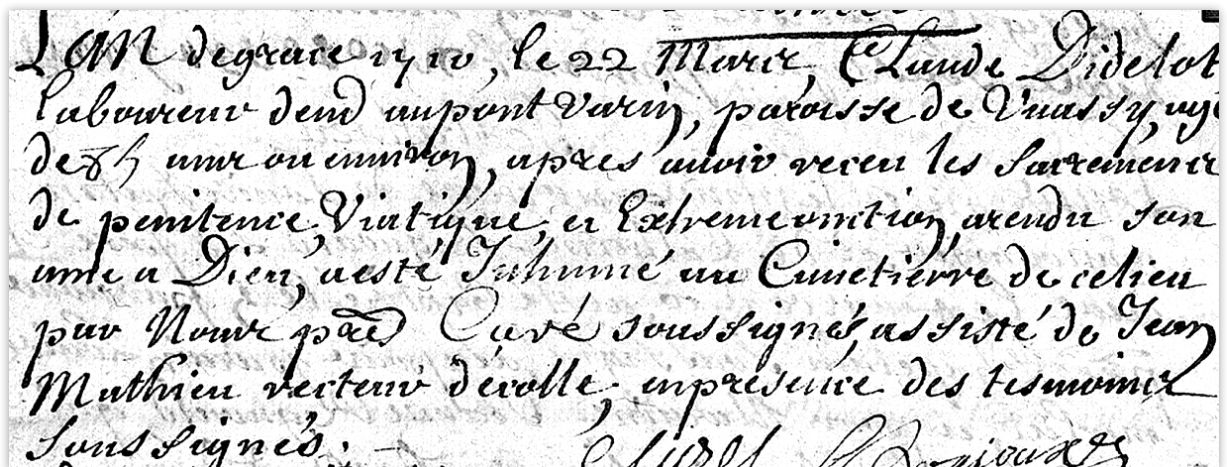 L'an de grace 1710, le 22 Mars, Claude Didelot
laboureur demt au pont Varin, paroisse de Vuassy, agé
de ans ou environ, apres avoir receu les sacremens
de penitence, Viatique, et Extremeonction, a rendu son
ame a Dieu, a esté Inhumé au Cimetierre de ce lieu
par Nous pbre Curé soussigné, assisté de Jean
Mathieu recteur d'écolle, en presence des tesmoins
soussignés.